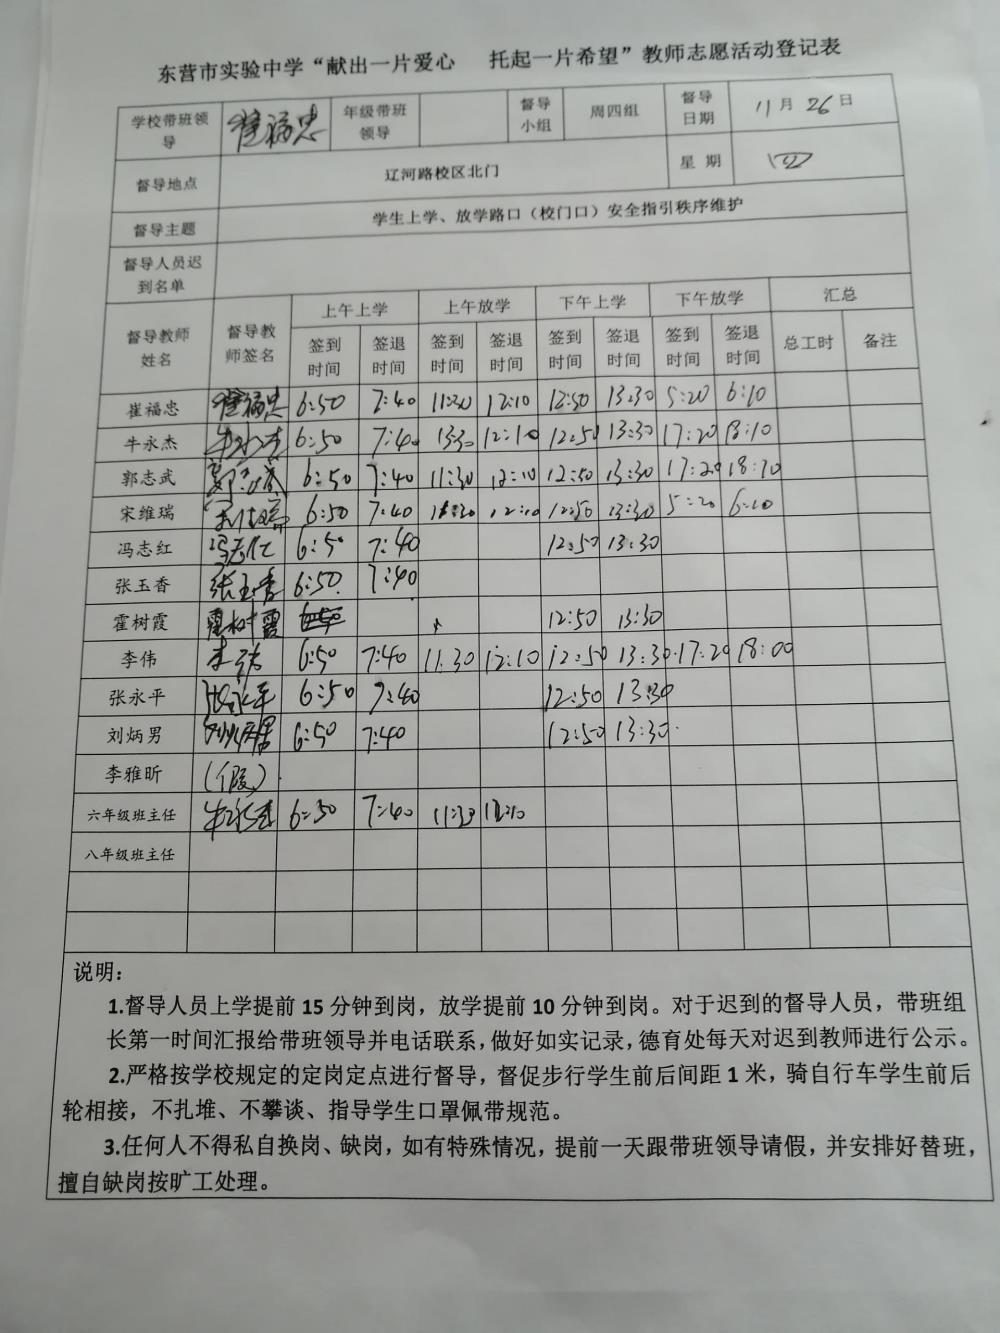 东营市实验中学“献出一片爱心 托起一片希望”教师志愿活动登记表
学校带班领导 崔福忠 年级带班领导 督导小组 周四组 督导日期 11月26日
督导地点 辽河路校区北门 星 期 四
督导主题 学生上学、放学路口（校门口）安全指引秩序维护
督导人员迟到名单
督导教师姓名 督导教师签名 上午上学 上午放学 下午上学 下午放学 汇总
签到时间 签退时间 签到时间 签退时间 签到时间 签退时间 签到时间 签退时间 总工时 备注
崔福忠 崔福忠 6:50 7:40 11:30 12:10 12:50 13:30 5:20 6:10
牛永杰 牛永杰 6:50 7:40 12:10 12:50 13:30 17:20 18:10
郭志武 郭志武 6:50 7:40 11:30 12:10 12:50 13:30 17:20 18:10
宋维瑞 宋维瑞 6:50 7:40 12:10 12:50 13:30 5:20 6:10
冯志红 6:50 7:40 12:50 13:30
张玉香 张玉香 6:50 7:40
霍树霞 霍树霞 12:50 13:30
李伟 李伟 6:50 7:40 11:30 12:10 12:50 13:30 17:20 18:00
张永平 张永平 6:50 7:40 12:50 13:30
刘炳男 刘炳男 6:50 7:40 12:50 13:30
李雅昕 （假）
六年级班主任 牛永杰 6:50 7:40 11:30 12:10
八年级班主任
说明：
1.督导人员上学提前 15 分钟到岗，放学提前 10 分钟到岗。对于迟到的督导人员，带班组
长第一时间汇报给带班领导并电话联系，做好如实记录，德育处每天对迟到教师进行公示。
2.严格按学校规定的定岗定点进行督导，督促步行学生前后间距 1 米，骑自行车学生前后
轮相接，不扎堆、不攀谈、指导学生口罩佩带规范。
3.任何人不得私自换岗、缺岗，如有特殊情况，提前一天跟带班领导请假，并安排好替班，
擅自缺岗按旷工处理。